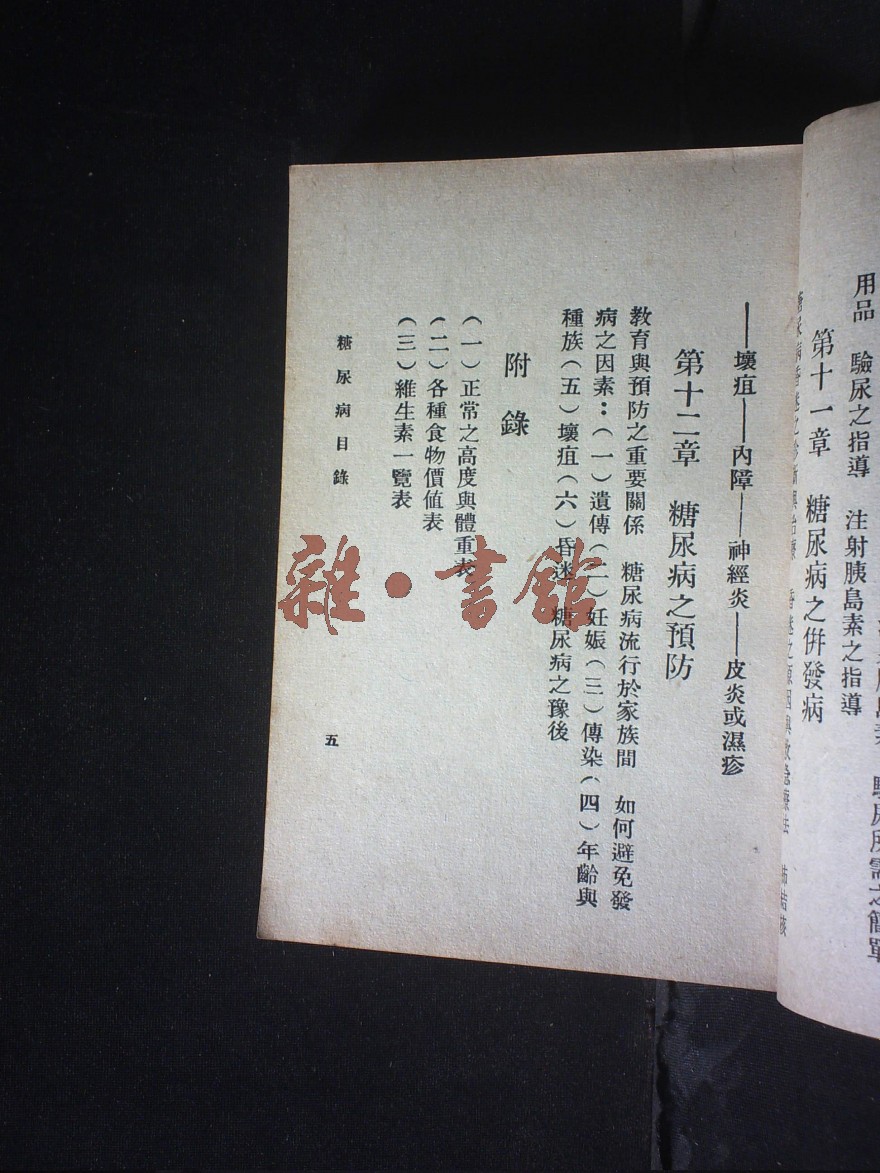 用品　驗尿之指導　注射胰島素之指導
第十一章　糖尿病之併發病
糖尿病昏迷之診斷與治療　昏迷之原因與救急療法　肺結核
——壞疽——內障——神經炎——皮炎或濕疹
第十二章　糖尿病之預防
教育與預防之重要關係　糖尿病流行於家族間　如何避免發
病之因素：（一）遺傳（二）妊娠（三）傳染（四）年齡與
種族（五）壞疽（六）昏迷　糖尿病之豫後
附錄
（一）正常之高度與體重表
（二）各種食物價值表
（三）維生素一覽表
糖尿病目錄
五
雜·書館